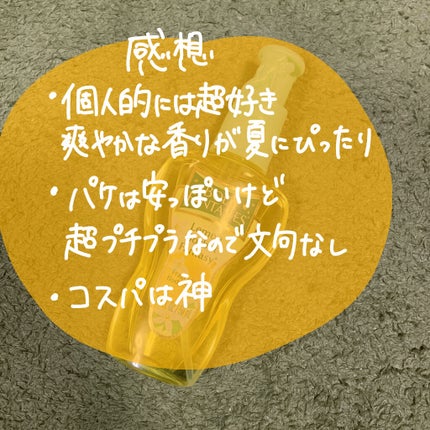 感想
・個人的には超好き
爽やかな香りが夏にぴったり
・パケは安っぽいけど
超プチプラなので文句なし
・コスパは神